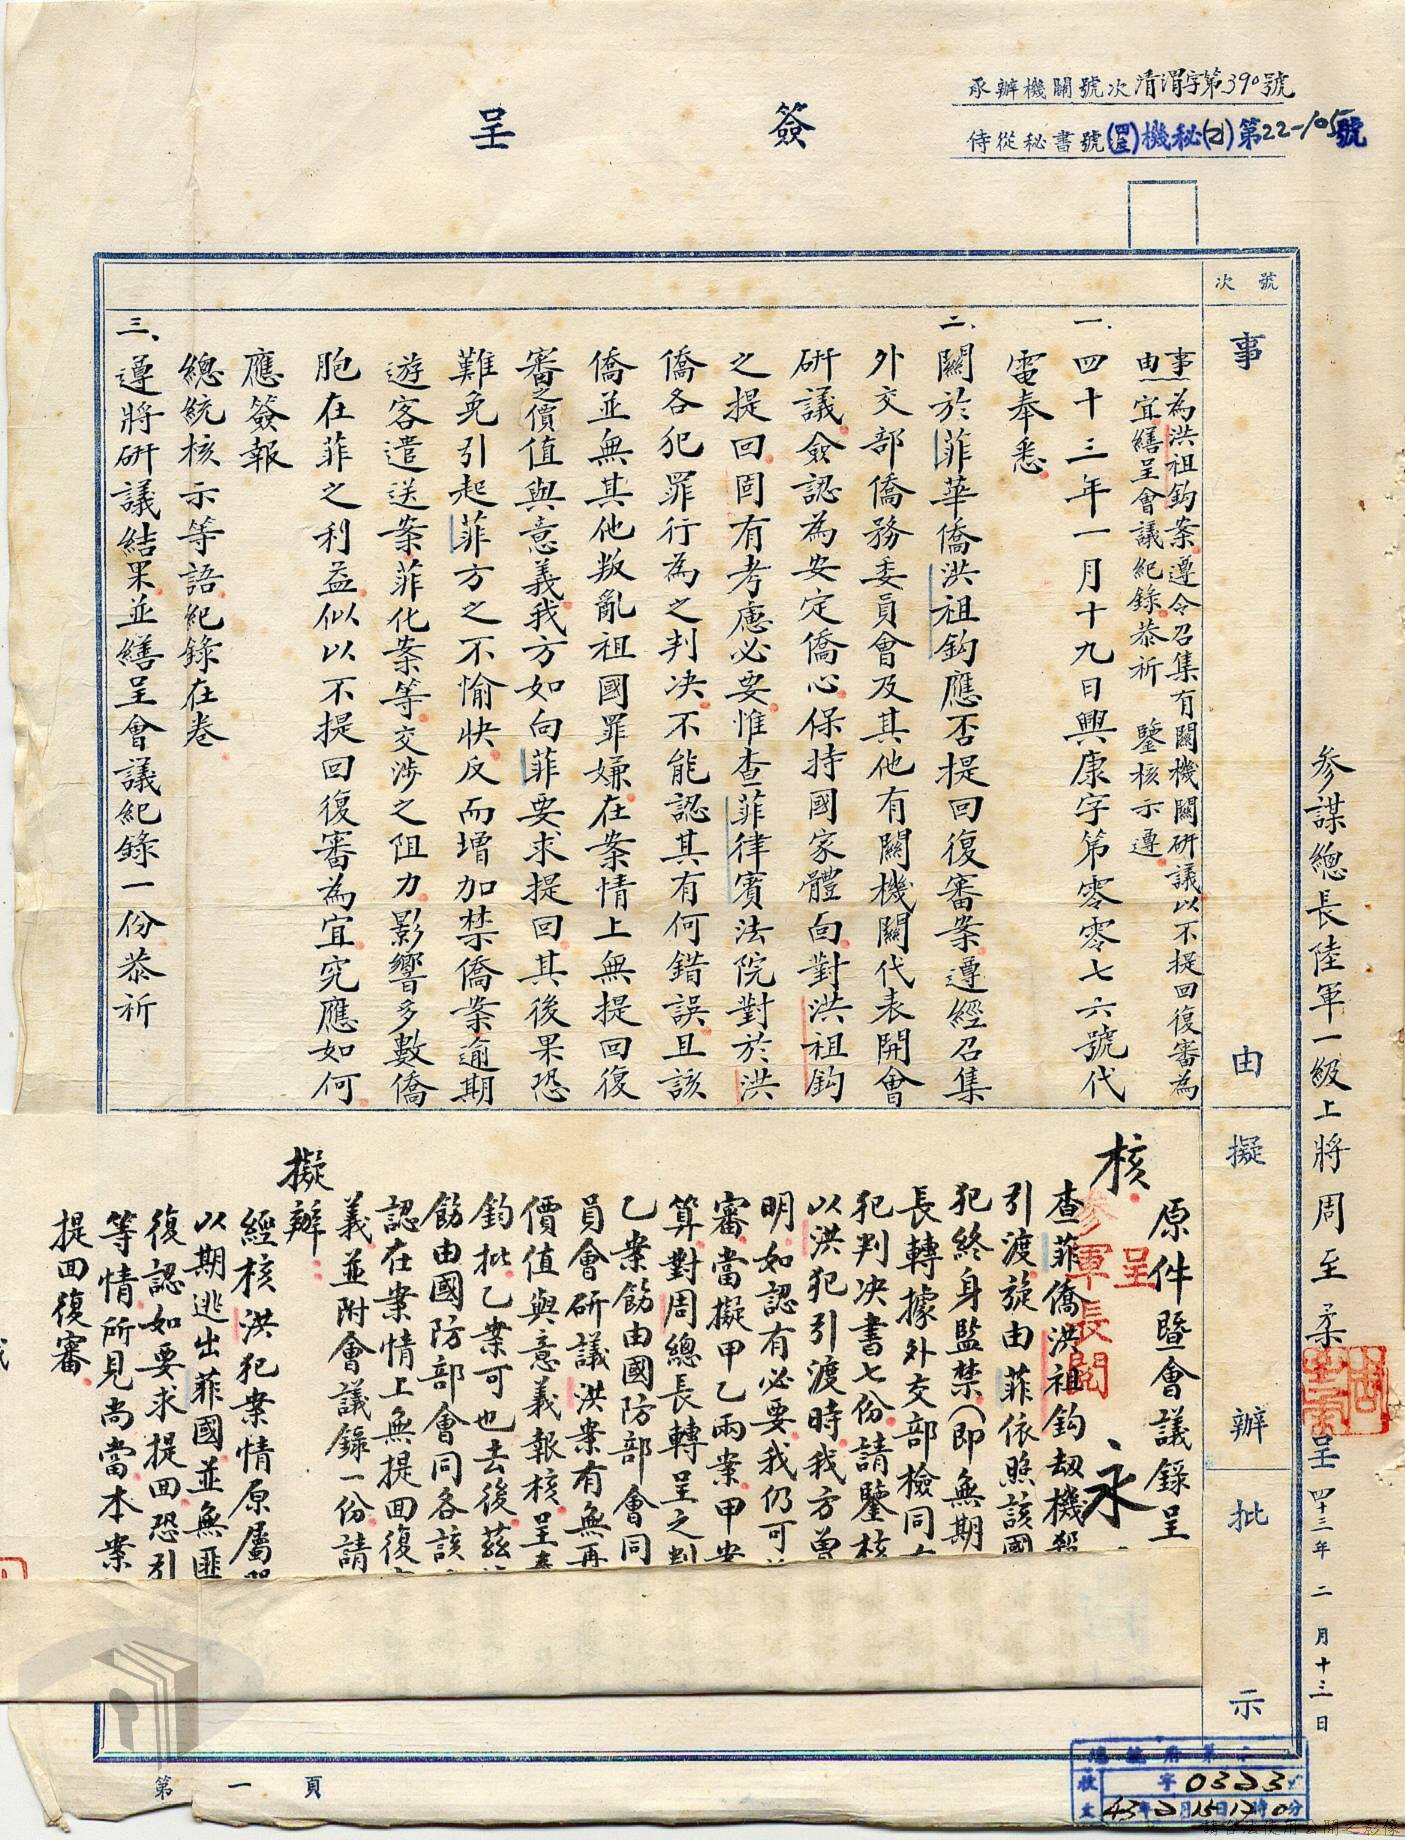 承辦機關號次清渭字第390號
侍從秘書號機秘(乙)第22-105號
簽呈
號次
事由
擬辦
批示
參謀總長陸軍一級上將周至柔呈 四十三年二月十三日
事由 為洪祖鈎案遵令召集有關機關研議以不提回復審為
宜繕呈會議紀錄恭祈 鑒核示遵
一、四十三年一月十九日興康字第零零七六號代
電奉悉
二、關於菲華僑洪祖鈎應否提回復審案遵經召集
外交部僑務委員會及其他有關機關代表開會
研議僉認為安定僑心保持國家體面對洪祖鈎
之提回固有考慮必要惟查菲律賓法院對於洪
僑各犯罪行為之判決不能認其有何錯誤且該
僑並無其他叛亂祖國罪嫌在案情上無提回復
審之價值與意義我方如向菲要求提回其後果恐
難免引起菲方之不愉快反而增加禁僑案逾期
遊客遣送案菲化案等交涉之阻力影響多數僑
胞在菲之利益似以不提回復審為宜究應如何
應簽報
總統核示等語紀錄在卷
三、遵將研議結果並繕呈會議紀錄一份恭祈
原件暨會議錄呈
核
呈
參軍長閱
查菲僑洪祖鈎劫機殺
引渡旋由菲依照該國
犯終身監禁(即無期
長轉據外交部檢同
犯判決書七份請鑒核
以洪犯引渡時我方曾
明如認有必要我仍可
審當擬甲乙兩案甲案
算對周總長轉呈之判
乙案飭由國防部會同
員會研議洪案有無再
價值與意義報核呈奉
鈞批乙案可也去後茲
飭由國防部會同各該
認在案情上無提回復
義並附會議錄一份請
擬辦:
經核洪犯案情原屬
以期逃出菲國並無匪
復認如要求提回恐引
等情所見尚當本案
提回復審
第一頁
總統府第二
收 字0323
文 43年2月15日17時0分